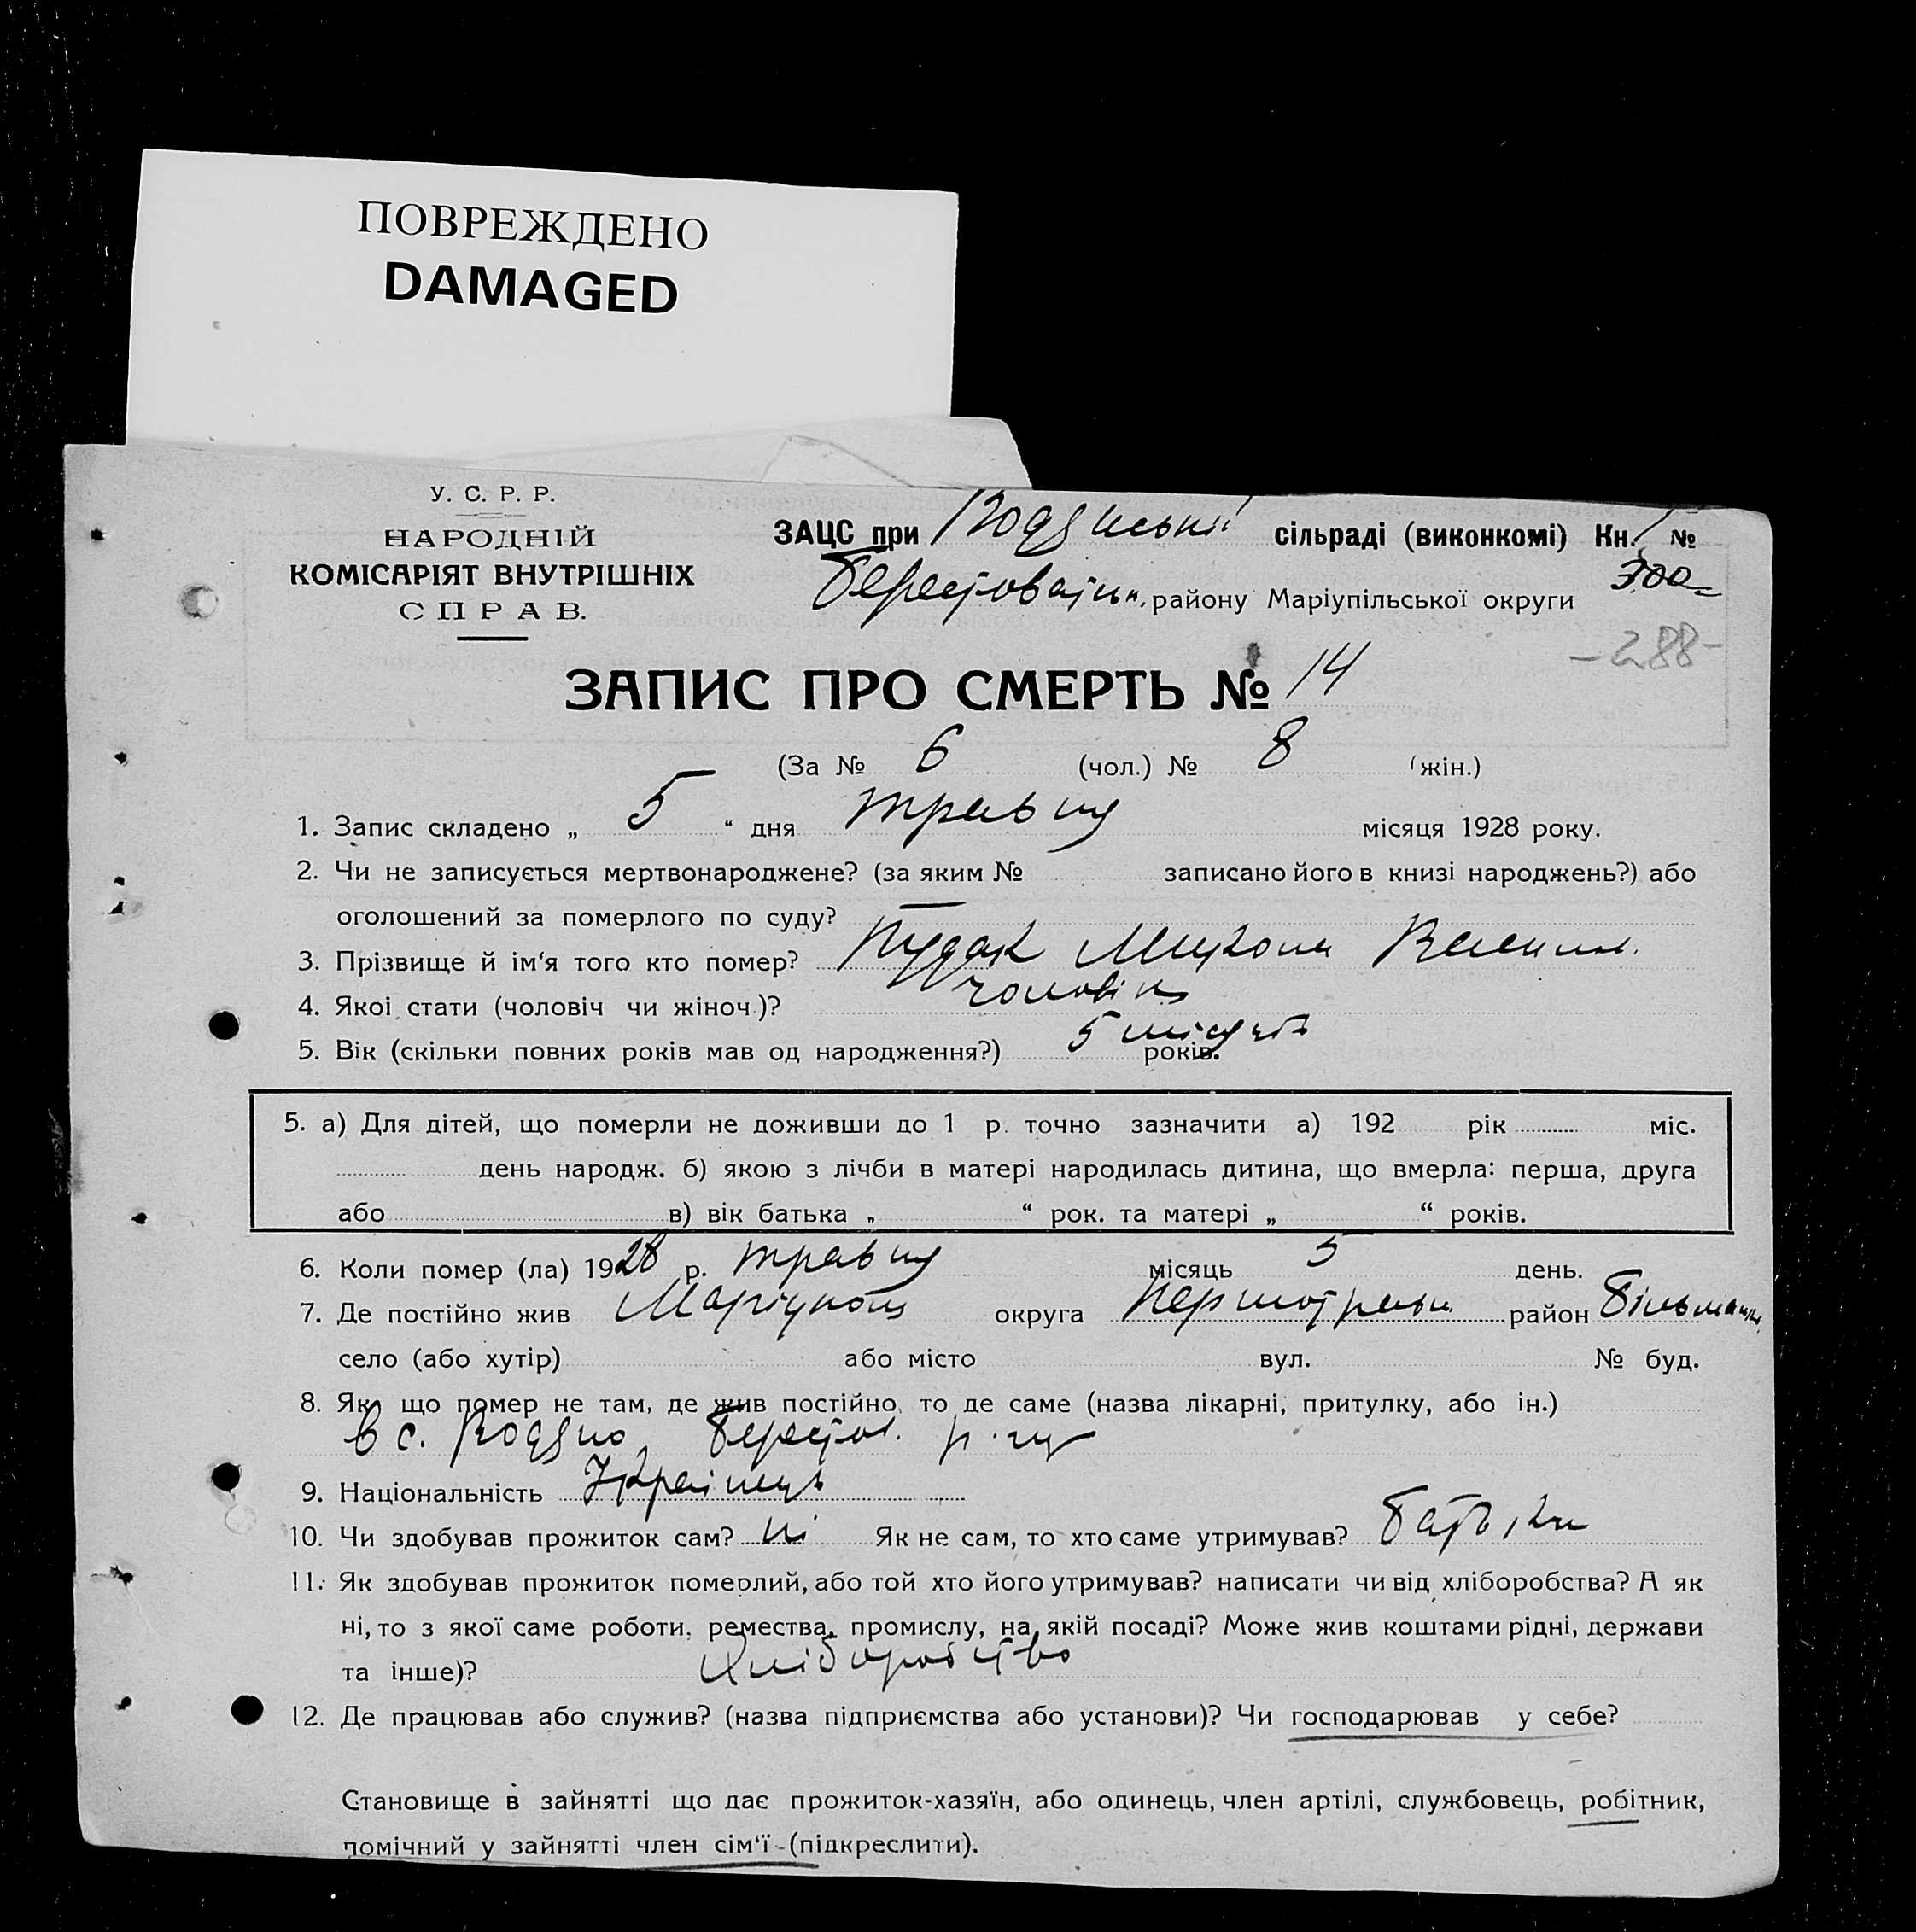 ПОВРЕЖДЕНО
DAMAGED
У. С. Р. Р.
НАРОДНІЙ
КОМІСАРІЯТ ВНУТРІШНІХ
СПРАВ.
ЗАЦС при сільраді (виконкомі) Кн. 1 №
300
району Маріупільської округи
-288-
ЗАПИС ПРО СМЕРТЬ № 14
(За № 6 (чол.) № 8 (жін.)
1. Запис складено „ 5 “ дня травня місяця 1928 року.
2. Чи не записується мертвонароджене? (за яким № записано його в книзі народжень?) або
оголошений за померлого по суду? —
3. Прізвище й ім'я того кто помер? Микола Васил.
4. Якоі стати (чоловіч чи жіноч.)?
5. Вік (скільки повних років мав од народження?) 5 років.
5. а) Для дітей, що померли не доживши до 1 р. точно зазначити а) 192 рік міс.
день народж. б) якою з лічби в матері народилась дитина, що вмерла: перша, друга
або в) вік батька „ “ рок. та матері „ “ років.
6. Коли помер (ла) 1928 р. травня місяць 5 день.
7. Де постійно жив округа район
село (або хутір) або місто вул. № буд.
8. Як що помер не там, де жив постійно, то де саме (назва лікарні, притулку, або ін.)
в с. Водяно Берестов. р-ну
9. Національність Українець
10. Чи здобував прожиток сам? ні Як не сам, то хто саме утримував? батьки
11. Як здобував прожиток померлий, або той хто його утримував? написати чи від хліборобства? А як
ні, то з якої саме роботи, ремества, промислу, на якій посаді? Може жив коштами рідні, держави
та інше)? Хліборобство
12. Де працював або служив? (назва підприємства або установи)? Чи господарював у себе?
Становище в зайнятті що дає прожиток-хазяїн, або одинець, член артілі, службовець, робітник,
помічний у зайнятті член сім'ї (підкреслити).